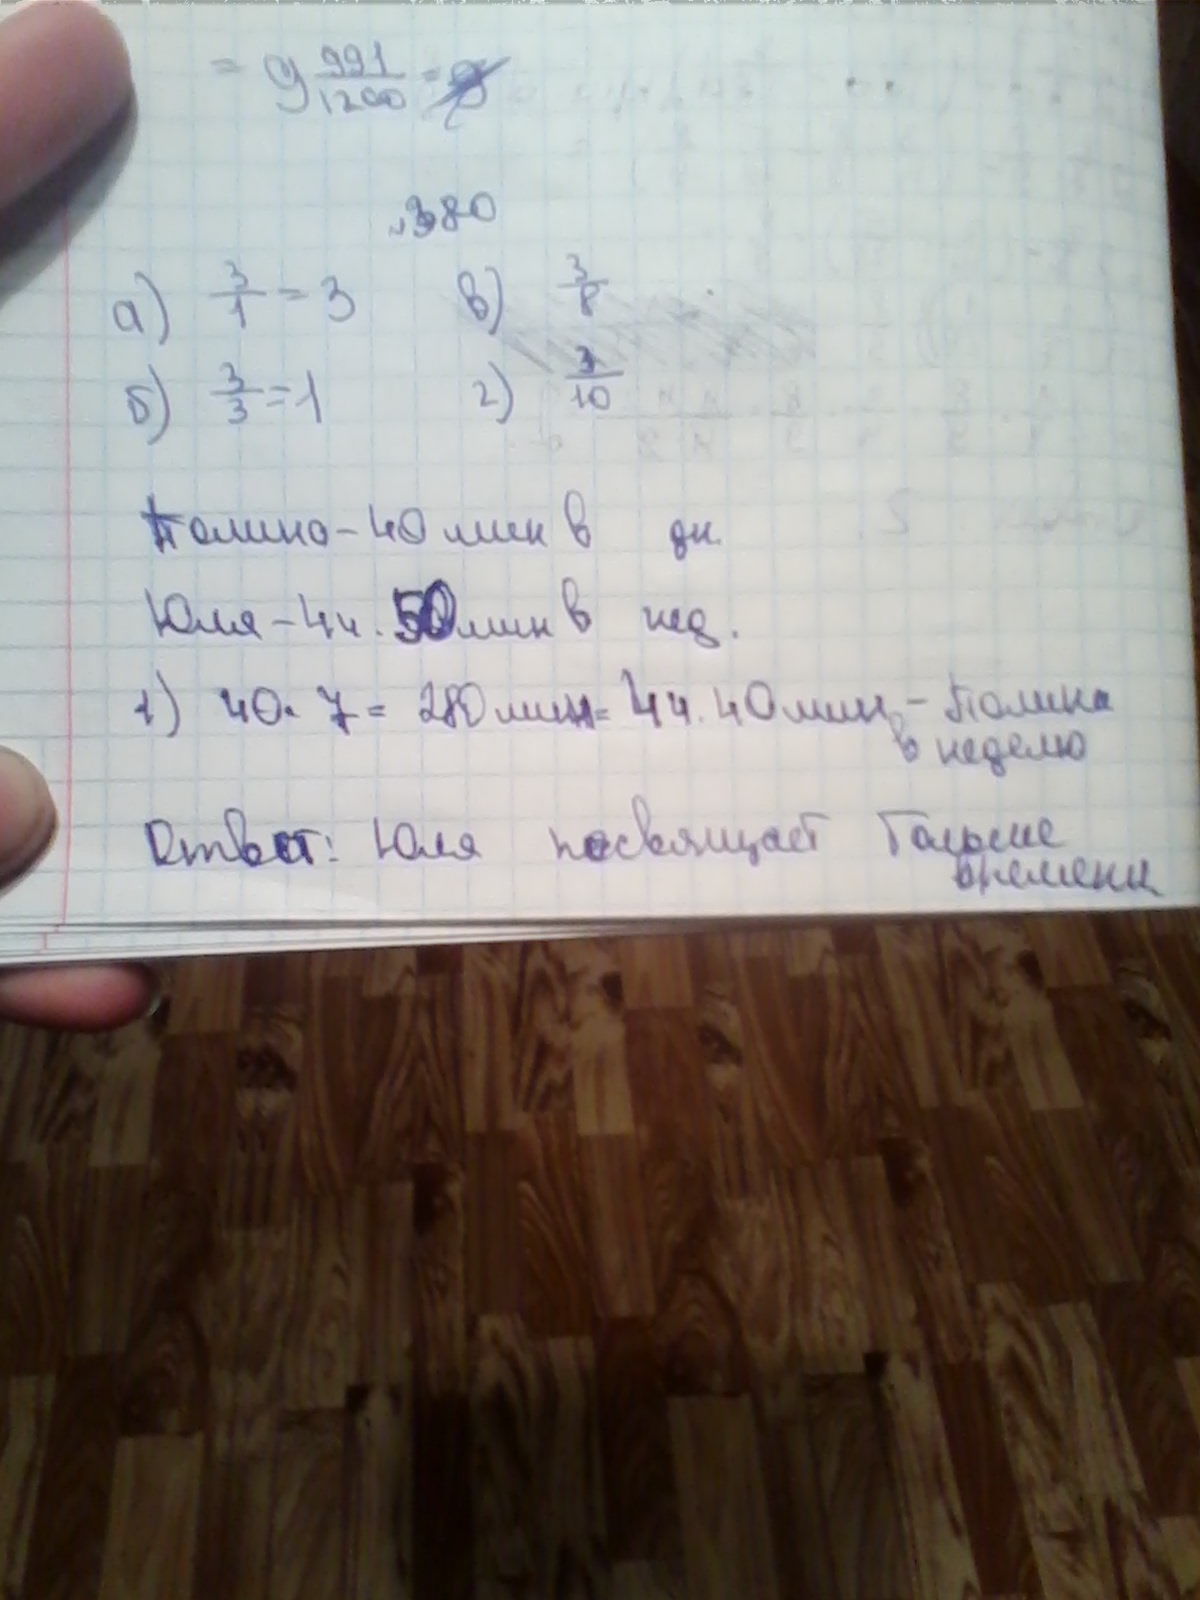 = 9 991/1200 =
№380
а) 3/1 = 3 в) 3/8
б) 3/3 = 1 г) 3/10
Полина - 40 мин в дн.
Юля - 4ч. 50 мин в нед.
1) 40 · 7 = 280 мин = 4ч. 40 мин - Полина
в неделю
Ответ: Юля посвящает больше
времени